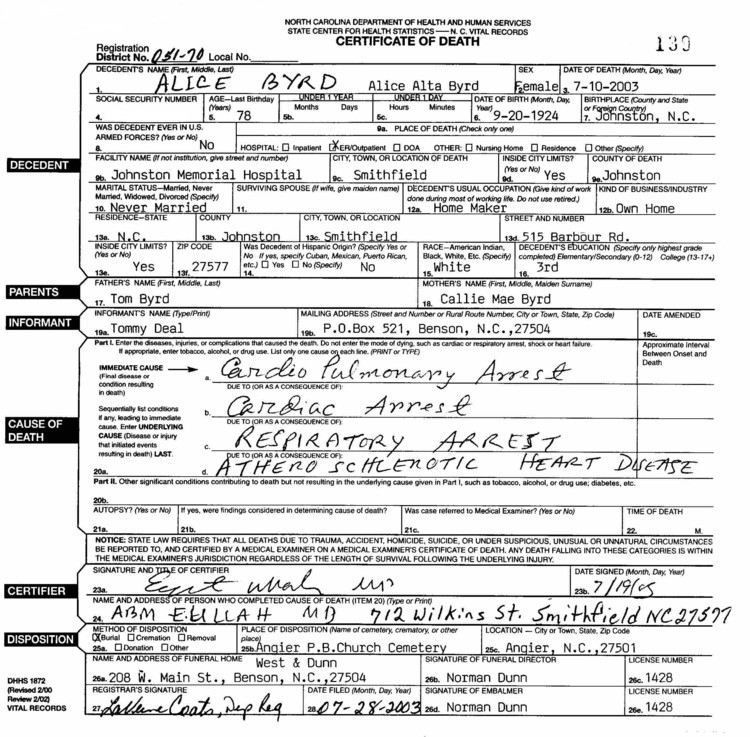 NORTH CAROLINA DEPARTMENT OF HEALTH AND HUMAN SERVICES
STATE CENTER FOR HEALTH STATISTICS — N. C. VITAL RECORDS
CERTIFICATE OF DEATH
130
Registration
District No. 051-70 Local No.
DECEDENT
DECEDENT'S NAME (First, Middle, Last) SEX DATE OF DEATH (Month, Day, Year)
1. ALICE BYRD Alice Alta Byrd 2. Female 3. 7-10-2003
SOCIAL SECURITY NUMBER AGE—Last Birthday (Years) UNDER 1 YEAR Months Days UNDER 1 DAY Hours Minutes DATE OF BIRTH (Month, Day, Year) BIRTHPLACE (County and State or Foreign Country)
4. 5. 78 5b. 5c. 6. 9-20-1924 7. Johnston, N.C.
WAS DECEDENT EVER IN U.S. ARMED FORCES? (Yes or No) 9a. PLACE OF DEATH (Check only one)
8. No HOSPITAL: ☐ Inpatient ☒ ER/Outpatient ☐ DOA OTHER: ☐ Nursing Home ☐ Residence ☐ Other (Specify)
FACILITY NAME (If not institution, give street and number) CITY, TOWN, OR LOCATION OF DEATH INSIDE CITY LIMITS? (Yes or No) COUNTY OF DEATH
9b. Johnston Memorial Hospital 9c. Smithfield 9d. Yes 9e. Johnston
MARITAL STATUS—Married, Never Married, Widowed, Divorced (Specify) SURVIVING SPOUSE (If wife, give maiden name) DECEDENT'S USUAL OCCUPATION (Give kind of work done during most of working life. Do not use retired.) KIND OF BUSINESS/INDUSTRY
10. Never Married 11. 12a. Home Maker 12b. Own Home
RESIDENCE—STATE COUNTY CITY, TOWN, OR LOCATION STREET AND NUMBER
13a. N.C. 13b. Johnston 13c. Smithfield 13d. 515 Barbour Rd.
INSIDE CITY LIMITS? (Yes or No) ZIP CODE Was Decedent of Hispanic Origin? (Specify Yes or No If yes, specify Cuban, Mexican, Puerto Rican, etc.) ☐ Yes ☐ No (Specify) RACE—American Indian, Black, White, Etc. (Specify) DECEDENT'S EDUCATION (Specify only highest grade completed) Elementary/Secondary (0-12) College (13-17+)
13e. Yes 13f. 27577 14. No 15. White 16. 3rd
PARENTS
FATHER'S NAME (First, Middle, Last) MOTHER'S NAME (First, Middle, Maiden Surname)
17. Tom Byrd 18. Callie Mae Byrd
INFORMANT
INFORMANT'S NAME (Type/Print) MAILING ADDRESS (Street and Number or Rural Route Number, City or Town, State, Zip Code) DATE AMENDED
19a. Tommy Deal 19b. P.O.Box 521, Benson, N.C.,27504 19c.
CAUSE OF DEATH
Part I. Enter the diseases, injuries, or complications that caused the death. Do not enter the mode of dying, such as cardiac or respiratory arrest, shock or heart failure.
If appropriate, enter tobacco, alcohol, or drug use. List only one cause on each line. (PRINT or TYPE)
Approximate Interval Between Onset and Death
IMMEDIATE CAUSE (Final disease or condition resulting in death)
a. Cardio Pulmonary Arrest
DUE TO (OR AS A CONSEQUENCE OF):
Sequentially list conditions if any, leading to immediate cause. Enter UNDERLYING CAUSE (Disease or injury that initiated events resulting in death) LAST.
b. Cardiac Arrest
DUE TO (OR AS A CONSEQUENCE OF):
c. RESPIRATORY ARREST
DUE TO (OR AS A CONSEQUENCE OF):
20a. d. ATHERO SCHLEROTIC HEART DISEASE
Part II. Other significant conditions contributing to death but not resulting in the underlying cause given in Part I, such as tobacco, alcohol, or drug use; diabetes, etc.
20b.
AUTOPSY? (Yes or No) If yes, were findings considered in determining cause of death? Was case referred to Medical Examiner? (Yes or No) TIME OF DEATH
21a. 21b. 21c. 22. M.
NOTICE: STATE LAW REQUIRES THAT ALL DEATHS DUE TO TRAUMA, ACCIDENT, HOMICIDE, SUICIDE, OR UNDER SUSPICIOUS, UNUSUAL OR UNNATURAL CIRCUMSTANCES
BE REPORTED TO, AND CERTIFIED BY A MEDICAL EXAMINER ON A MEDICAL EXAMINER'S CERTIFICATE OF DEATH. ANY DEATH FALLING INTO THESE CATEGORIES IS WITHIN
THE MEDICAL EXAMINER'S JURISDICTION REGARDLESS OF THE LENGTH OF SURVIVAL FOLLOWING THE UNDERLYING INJURY.
CERTIFIER
SIGNATURE AND TITLE OF CERTIFIER DATE SIGNED (Month, Day, Year)
23a. MD 23b.
NAME AND ADDRESS OF PERSON WHO COMPLETED CAUSE OF DEATH (ITEM 20) (Type or Print)
24. ABM ELILLAH MD 712 Wilkins St. Smithfield NC 27577
DISPOSITION
METHOD OF DISPOSITION PLACE OF DISPOSITION (Name of cemetery, crematory, or other place) LOCATION — City or Town, State, Zip Code
☒ Burial ☐ Cremation ☐ Removal
25a. ☐ Donation ☐ Other 25b. Angier P.B.Church Cemetery 25c. Angier, N.C.,27501
NAME AND ADDRESS OF FUNERAL HOME SIGNATURE OF FUNERAL DIRECTOR LICENSE NUMBER
West & Dunn
26a. 208 W. Main St., Benson, N.C.,27504 26b. Norman Dunn 26c. 1428
REGISTRAR'S SIGNATURE DATE FILED (Month, Day, Year) SIGNATURE OF EMBALMER LICENSE NUMBER
27. LaVerne Coats, Dep Reg 28. 07-28-2003 26d. Norman Dunn 26e. 1428
DHHS 1872
(Revised 2/00
Review 2/02)
VITAL RECORDS